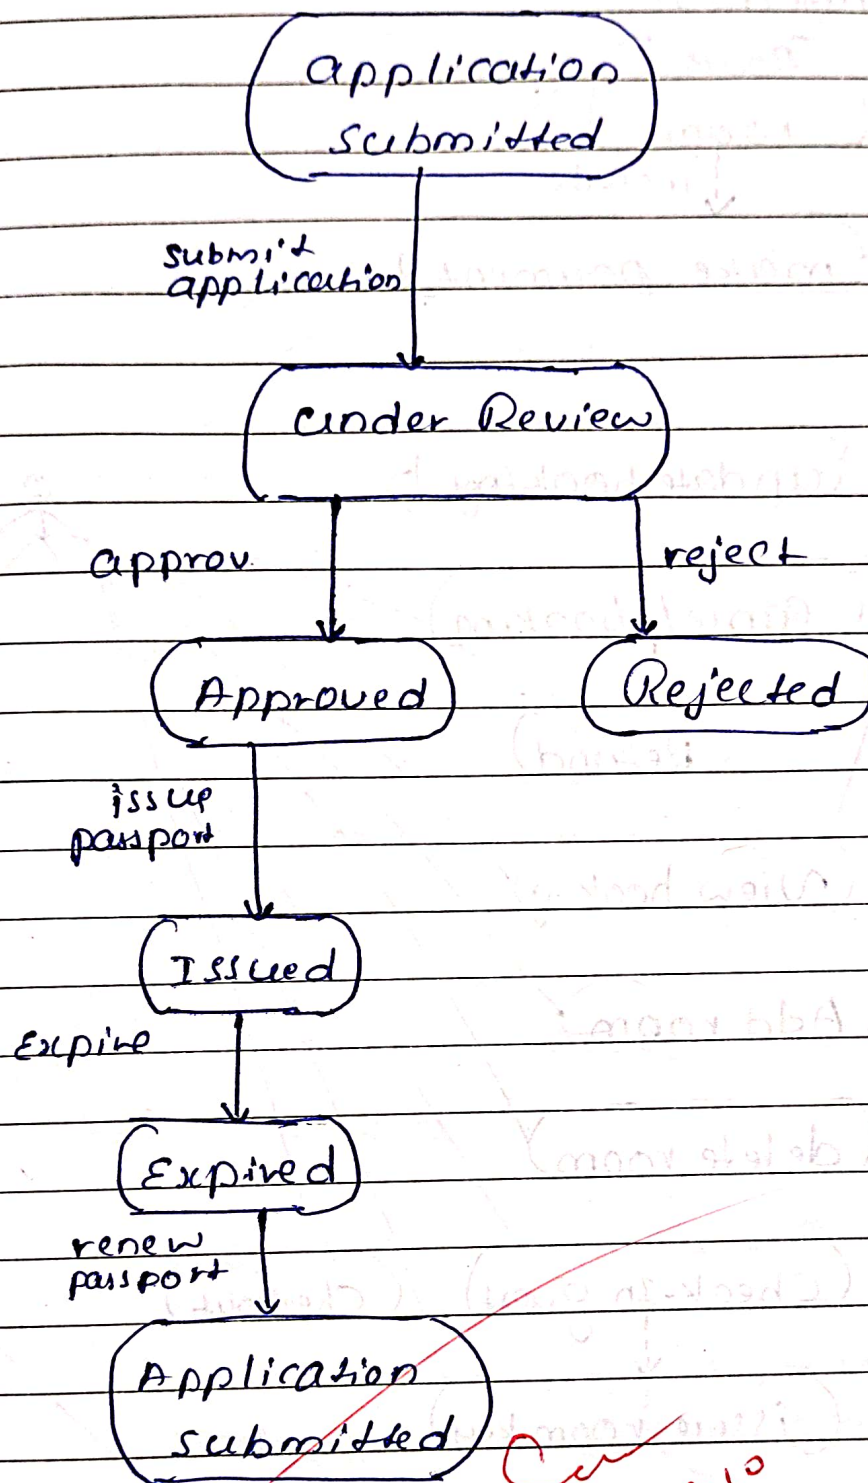 application
submitted
submit
application
under Review
approv.
reject
Approved
Rejected
issue
passport
Issued
Expire
Expired
renew
passport
Application
submitted